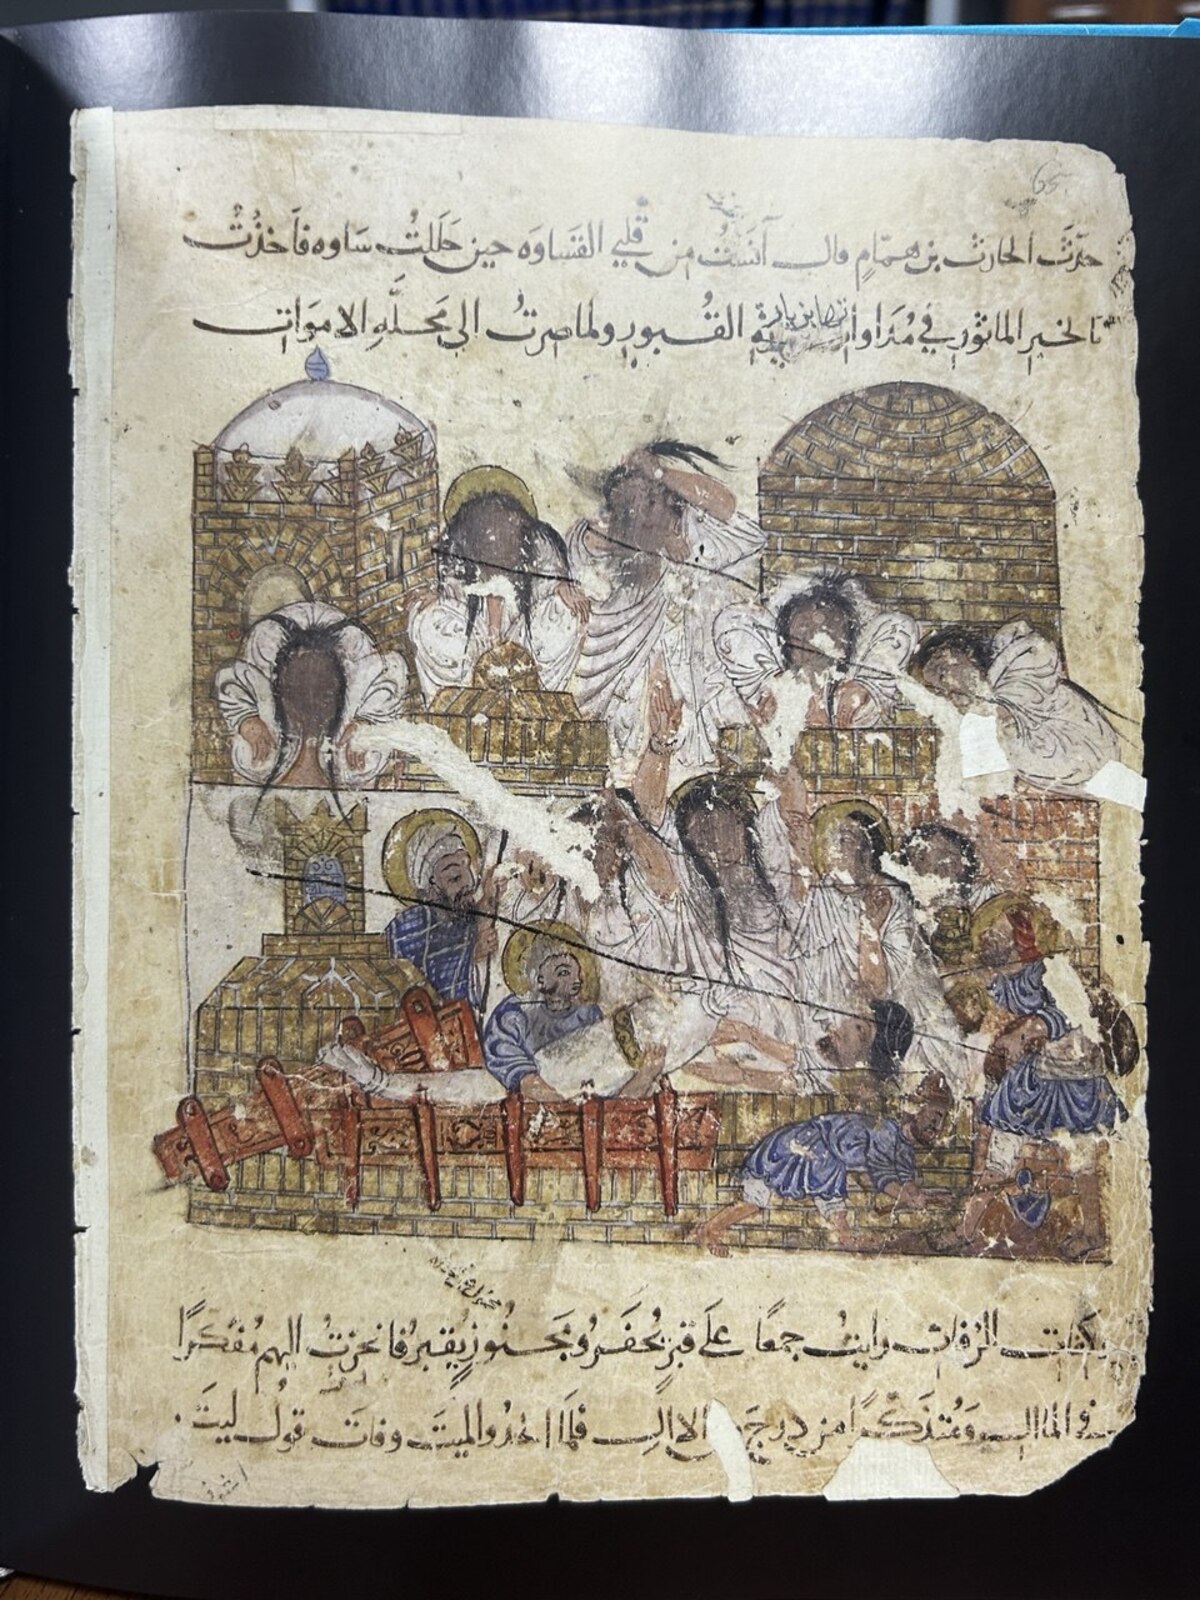 65
حدَّثَ الحارثُ بن همّامٍ قال آنستُ من قلبي القساوَه حين حَلَلتُ سَاوه فأخذْتُ
بالخبر الماثُور في مُدَاواتها بزيارة القُبور ولما صرتُ الى مَحَلَّةِ الاموَات
وكِفات الرُفات رايتُ جمعًا علَى قبرٍ يُحفَر ومَجنوزٍ يُقبَر فانحزتُ اليهم مُفكرًا
في المال ومُتذَكرًا من درجَ من الال فلمّا الحدُوا الميتَ وفاتَ قولُ ليتَ